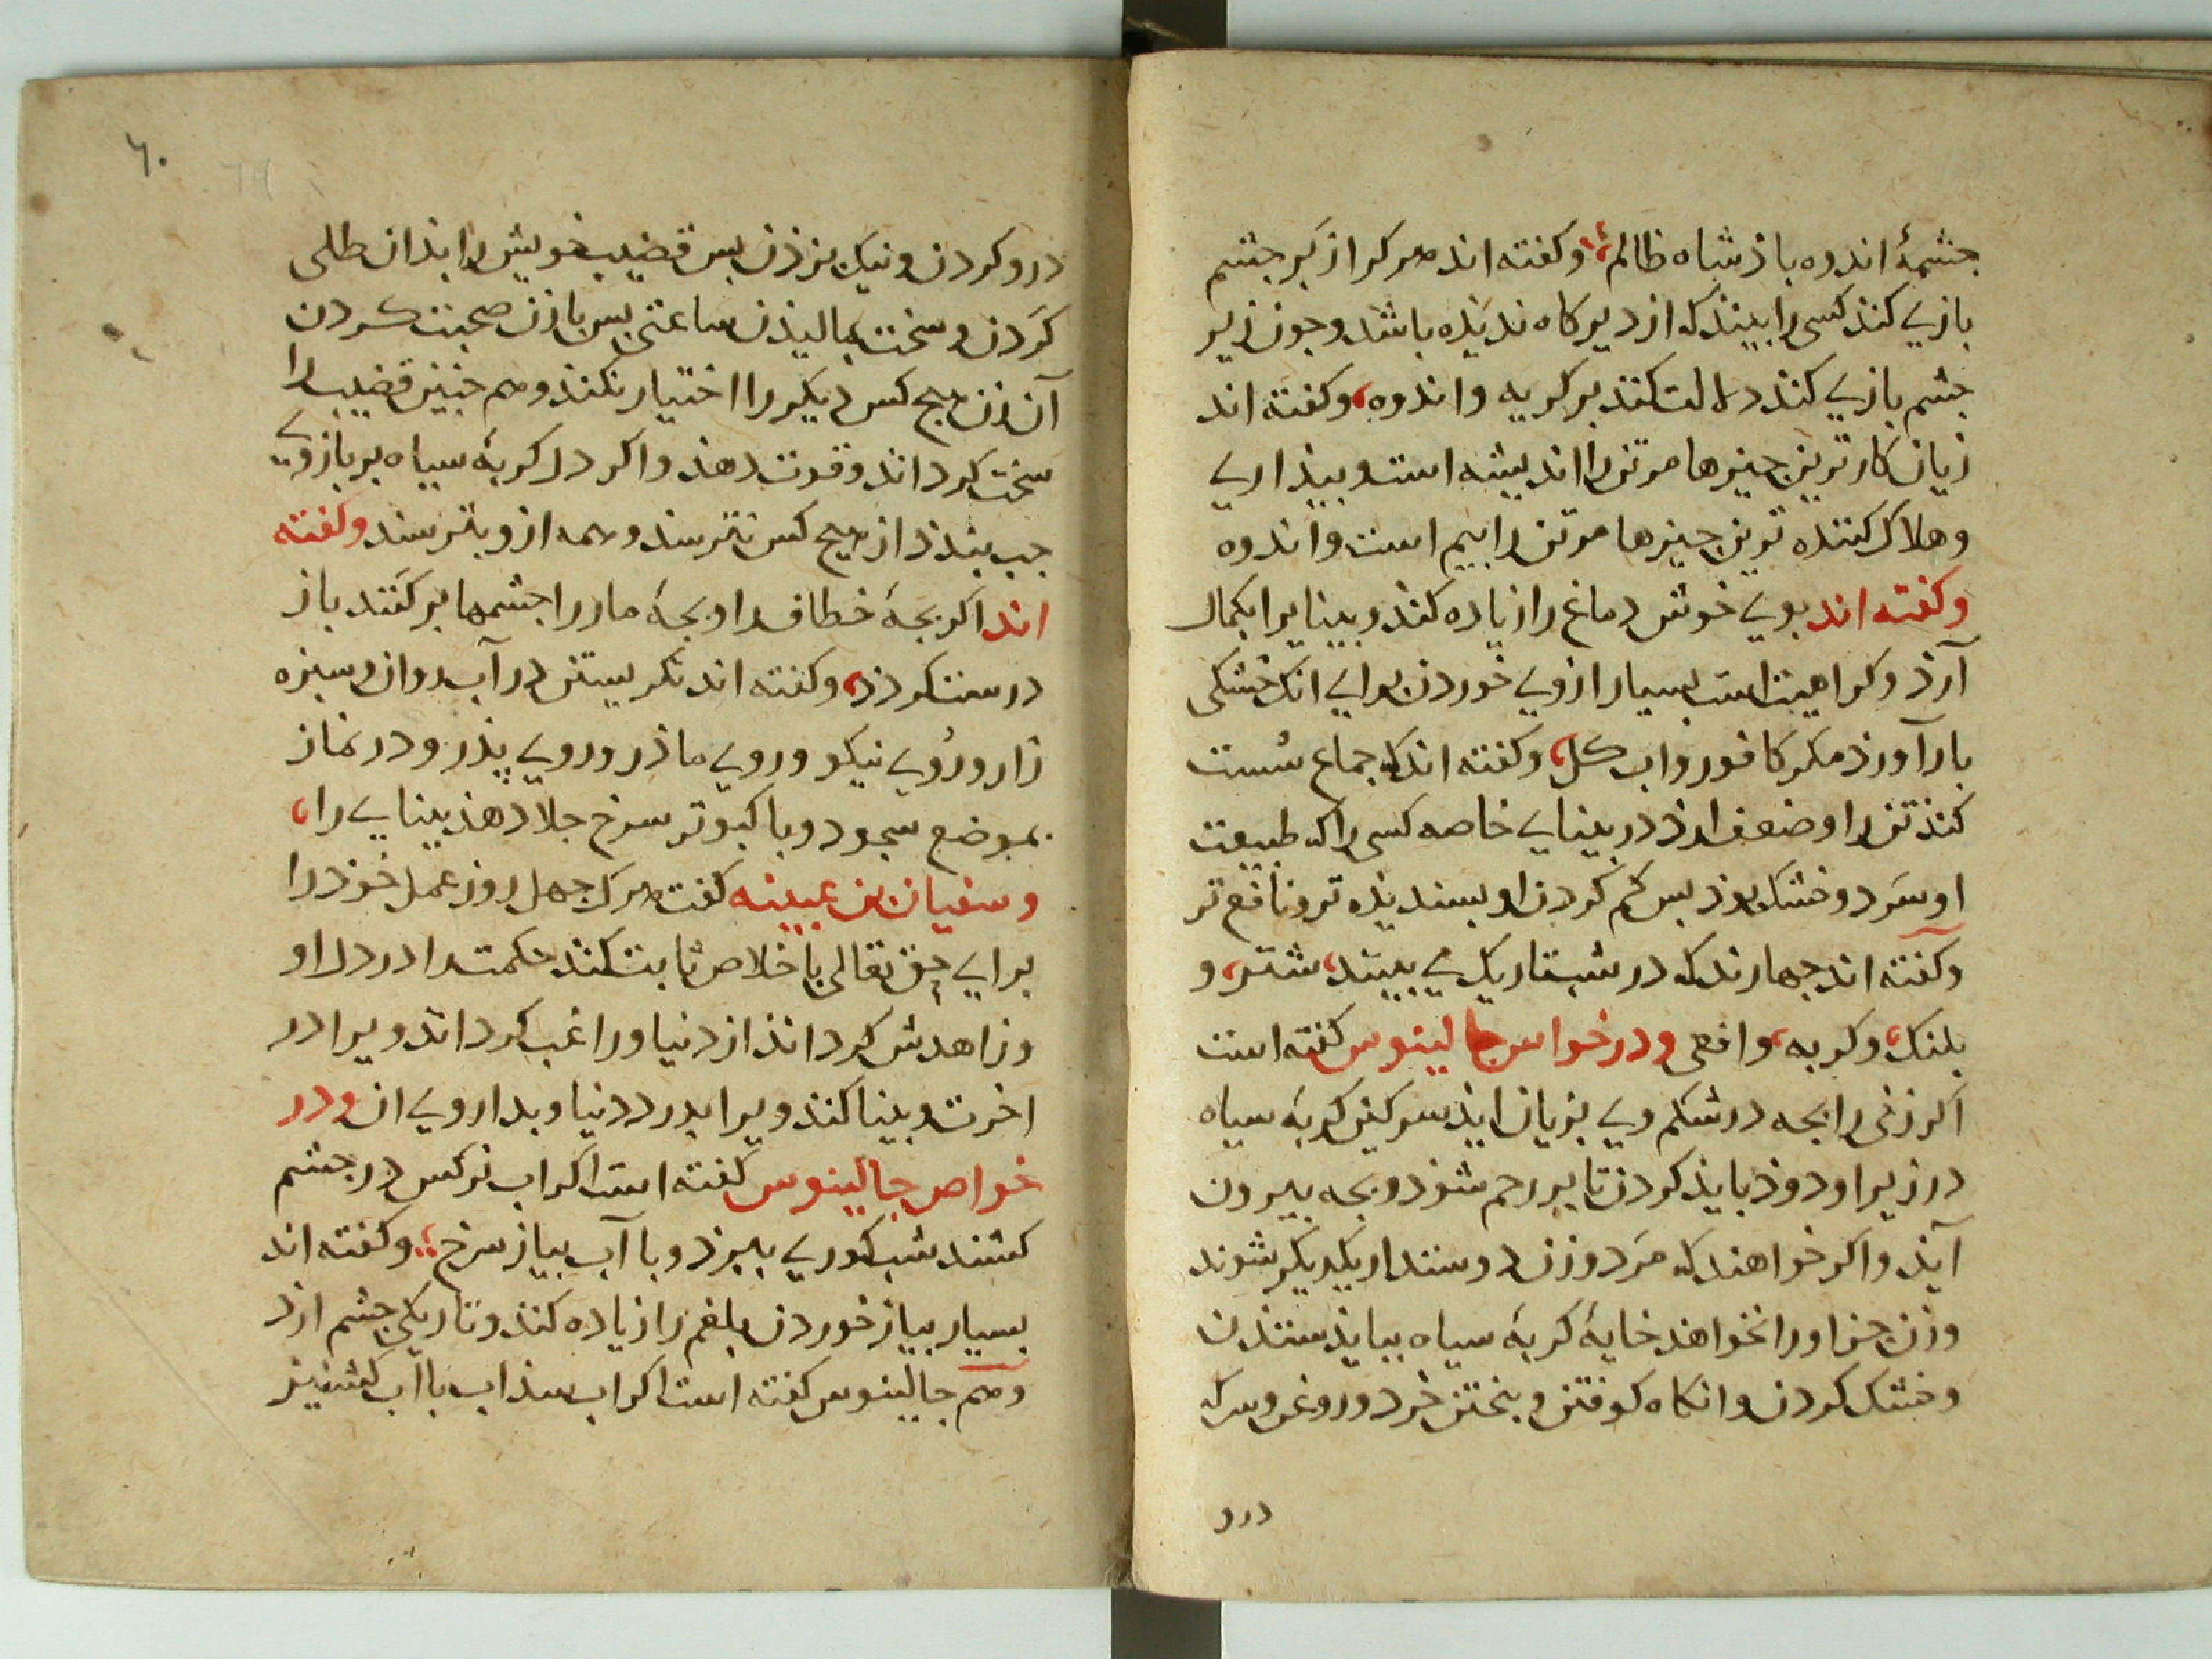 جشمهٔ اندوه باذشاه ظالم وکفته اند هرکرا زبر جشم
بازیے کند کسی را بیند که از دیرکاه ندیذه باشد وجون زیر
جشم بازیے کند دلالت کند بر کریه واندوه وکفته اند
زیان کار ترین جیزها مرتن را اندیشه است وبیذاریے
وهلاک کننده ترین جیزها مرتن را بیم است واندوه
وکفته اند بویے خوش دماغ را زیاده کند وبینایرا بکمال
آرذ وکراهیت است بسیار ازویے خوردن براے انک خشکی
بار آورذ مکر کافور واب کل وکفته اند که جماع سُست
کند تن را وضعف ارذ در بینایے خاصه کسی را که طبیعت
او سَرد وخشک بوذ بس کم کردن او بسندیذه تر ونافع تر
وکفته اند جهارند که در شب تاریک می بینند شتر و
بلنک وکربه وافعی ودر خواص جالینوس کفته است
اکر زنی را بجه در شکم ویے بزیان ایذ سرکین کربهٔ سیاه
در زیر او دوذ بایذ کردن تا ببر رحم شوذ وبجه بیرون
آیذ واکر خواهند که مَرد وزن دوستدار یکدیکر شوند
وزن جز او را نخواهد خایهٔ کربهٔ سیاه ببایذ ستذن
وخشک کردن وانکاه کوفتن وبیختن خرد وروغن وسرکه
درو
٦٠
درو کردن ونیک بزذن بس قضیب خویش را بذان طلی
کَردن وسخت بمالیذن ساعتی بس با زن صحبت کردن
آن زن هیج کس دیکر را اختیار نکند وهم جنین قضیب را
سخت کرداند وقوت دهذ واکر دل کربهٔ سیاه بر بازویے
جب بندذ از هیج کس نترسد وهمه ازو بترسند وکفته
اند اکر بجهٔ خطاف را وبجهٔ مار را جشمها بر کنند باز
درست کردذ وکفته اند نکریستن در آب روان وسبزه
زار ورُویے نیکو ورویے ماذر ورویے پذر ودر نماز
بموضع سجود وبا کبوتر سرخ جلا دهذ بینایے را
وسفیان بن عیینه کفت هرک جهل روز عمل خوذ را
برایے حق تعالی باخلاص ثابت کند حکمت را در دل او
وزاهدش کرداند از دنیا وراغب کرداند ویرا در
اخرت وبینا کند ویرا بدرد دنیا وبدارویے ان ودر
خواص جالینوس کفته است اکر اب نرکس در جشم
کشند شب کوریے ببرذ وبا آب بیاز سرخ وکفته اند
بسیار بیاز خوردن بلغم را زیاده کند وتاریکی جشم ارذ
وهم جالینوس کفته است اکر اب سذاب با اب کشنیز